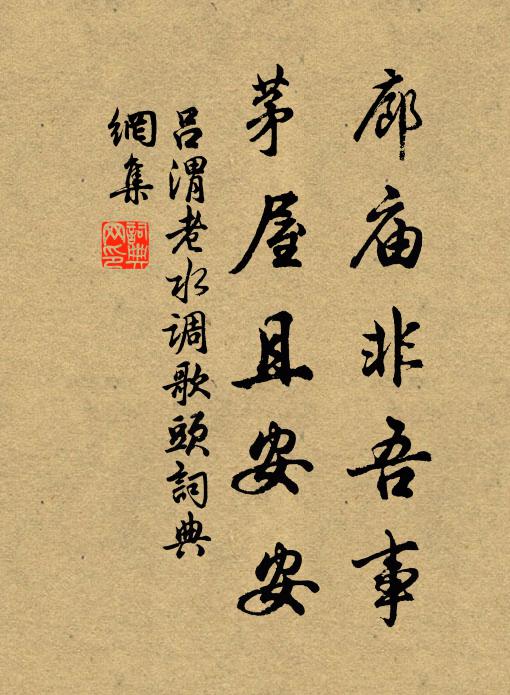 廊庙非吾事
茅屋且安安
吕渭老水调歌頭詞典
網集
詞典
网印